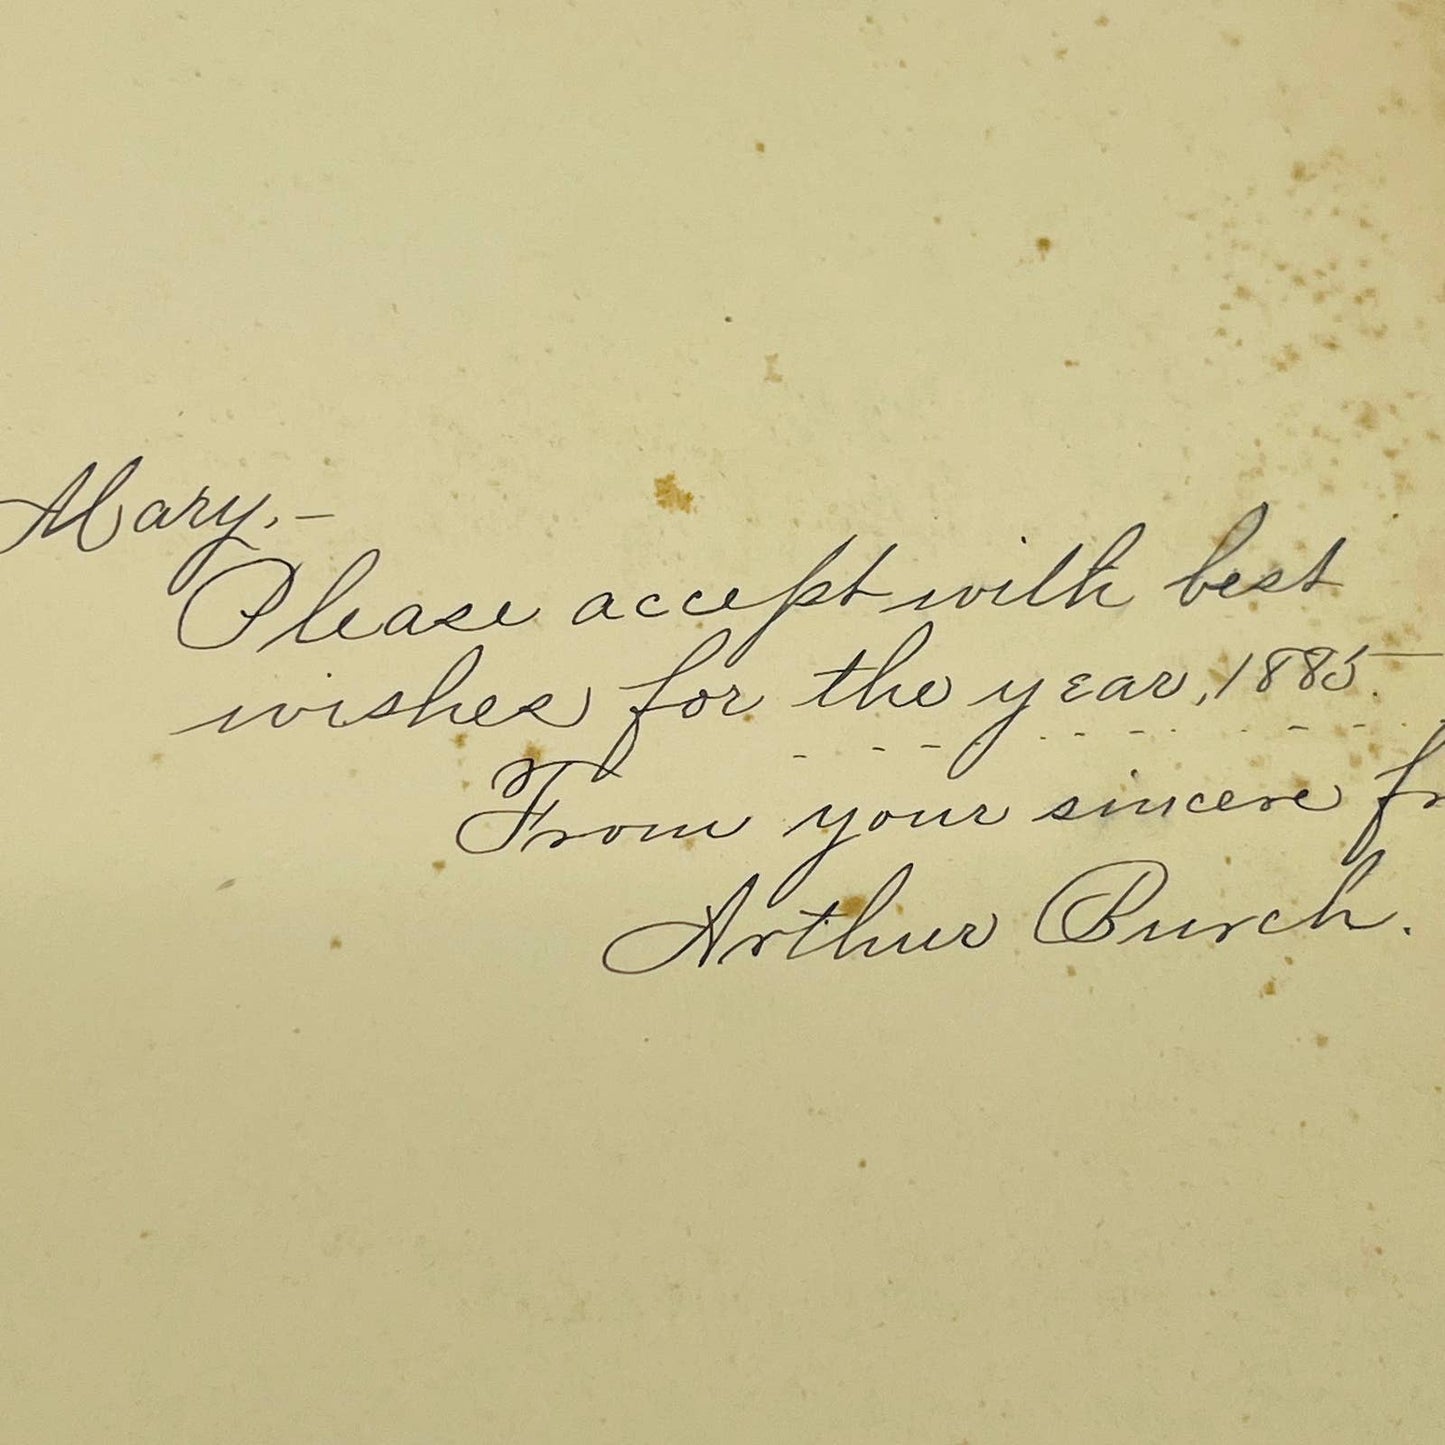 Mary,—
Please accept with best
wishes for the year, 1885.
From your sincere fr
Arthur Burch.